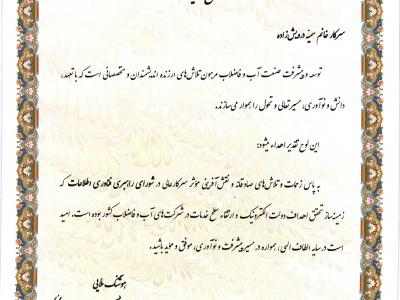 سرکار خانم سمیه درویش‌زاده
توسعه و پیشرفت صنعت آب و فاضلاب مرهون تلاش‌های ارزنده اندیشمندان و متخصصانی است که با تعهد،
دانش و نوآوری، مسیر تعالی و تحول را هموار می‌سازند.
این لوح تقدیر اهداء میشود:
به پاس زحمات و تلاش‌های صادقانه و نقش‌آفرینی مؤثر سرکارعالی در شورای راهبری فناوری اطلاعات که
زمینه‌ساز تحقق اهداف دولت الکترونیک و ارتقاء سطح خدمات در شرکت‌های آب و فاضلاب کشور بوده است. امید
است در سایه الطاف الهی، همواره در مسیر پیشرفت و نوآوری، موفق و مؤید باشید.
هوشنگ ملایی